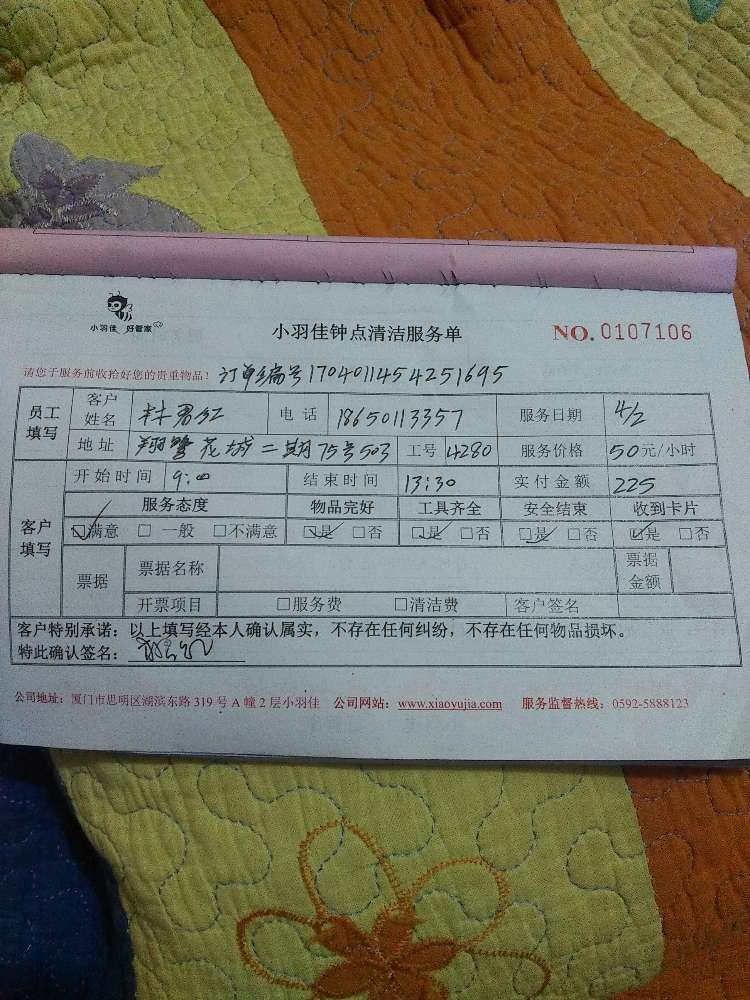 小羽佳 好管家
小羽佳钟点清洁服务单
NO. 0107106
请您于服务前收拾好您的贵重物品! 订单编号1704011454251695
员工填写
客户姓名 林君红 电话 18650113357 服务日期 4/2
地址 翔鹭花城二期75号503 工号 4280 服务价格 50元/小时
客户填写
开始时间 9:00 结束时间 13:30 实付金额 225
服务态度 物品完好 工具齐全 安全结束 收到卡片
☑满意 □ 一般 □不满意 ☑是 □否 ☑是 □否 ☑是 □否 ☑是 □否
票据 票据名称 票据金额
开票项目 □服务费 □清洁费 客户签名
客户特别承诺：以上填写经本人确认属实，不存在任何纠纷，不存在任何物品损坏。
特此确认签名：
公司地址：厦门市思明区湖滨东路 319 号 A 幢 2 层小羽佳 公司网站：www.xiaoyujia.com 服务监督热线：0592-5888123